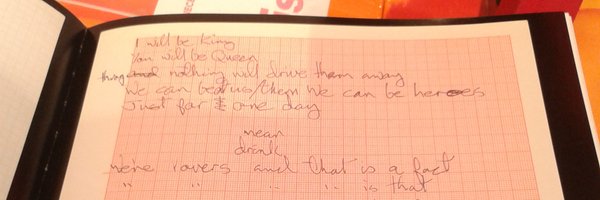 I will be King
You will be Queen
nothing will drive them away
We can beat us/them We can be heroes
Just for one day
mean
drank
We're lovers and that is a fact
" " " " is that